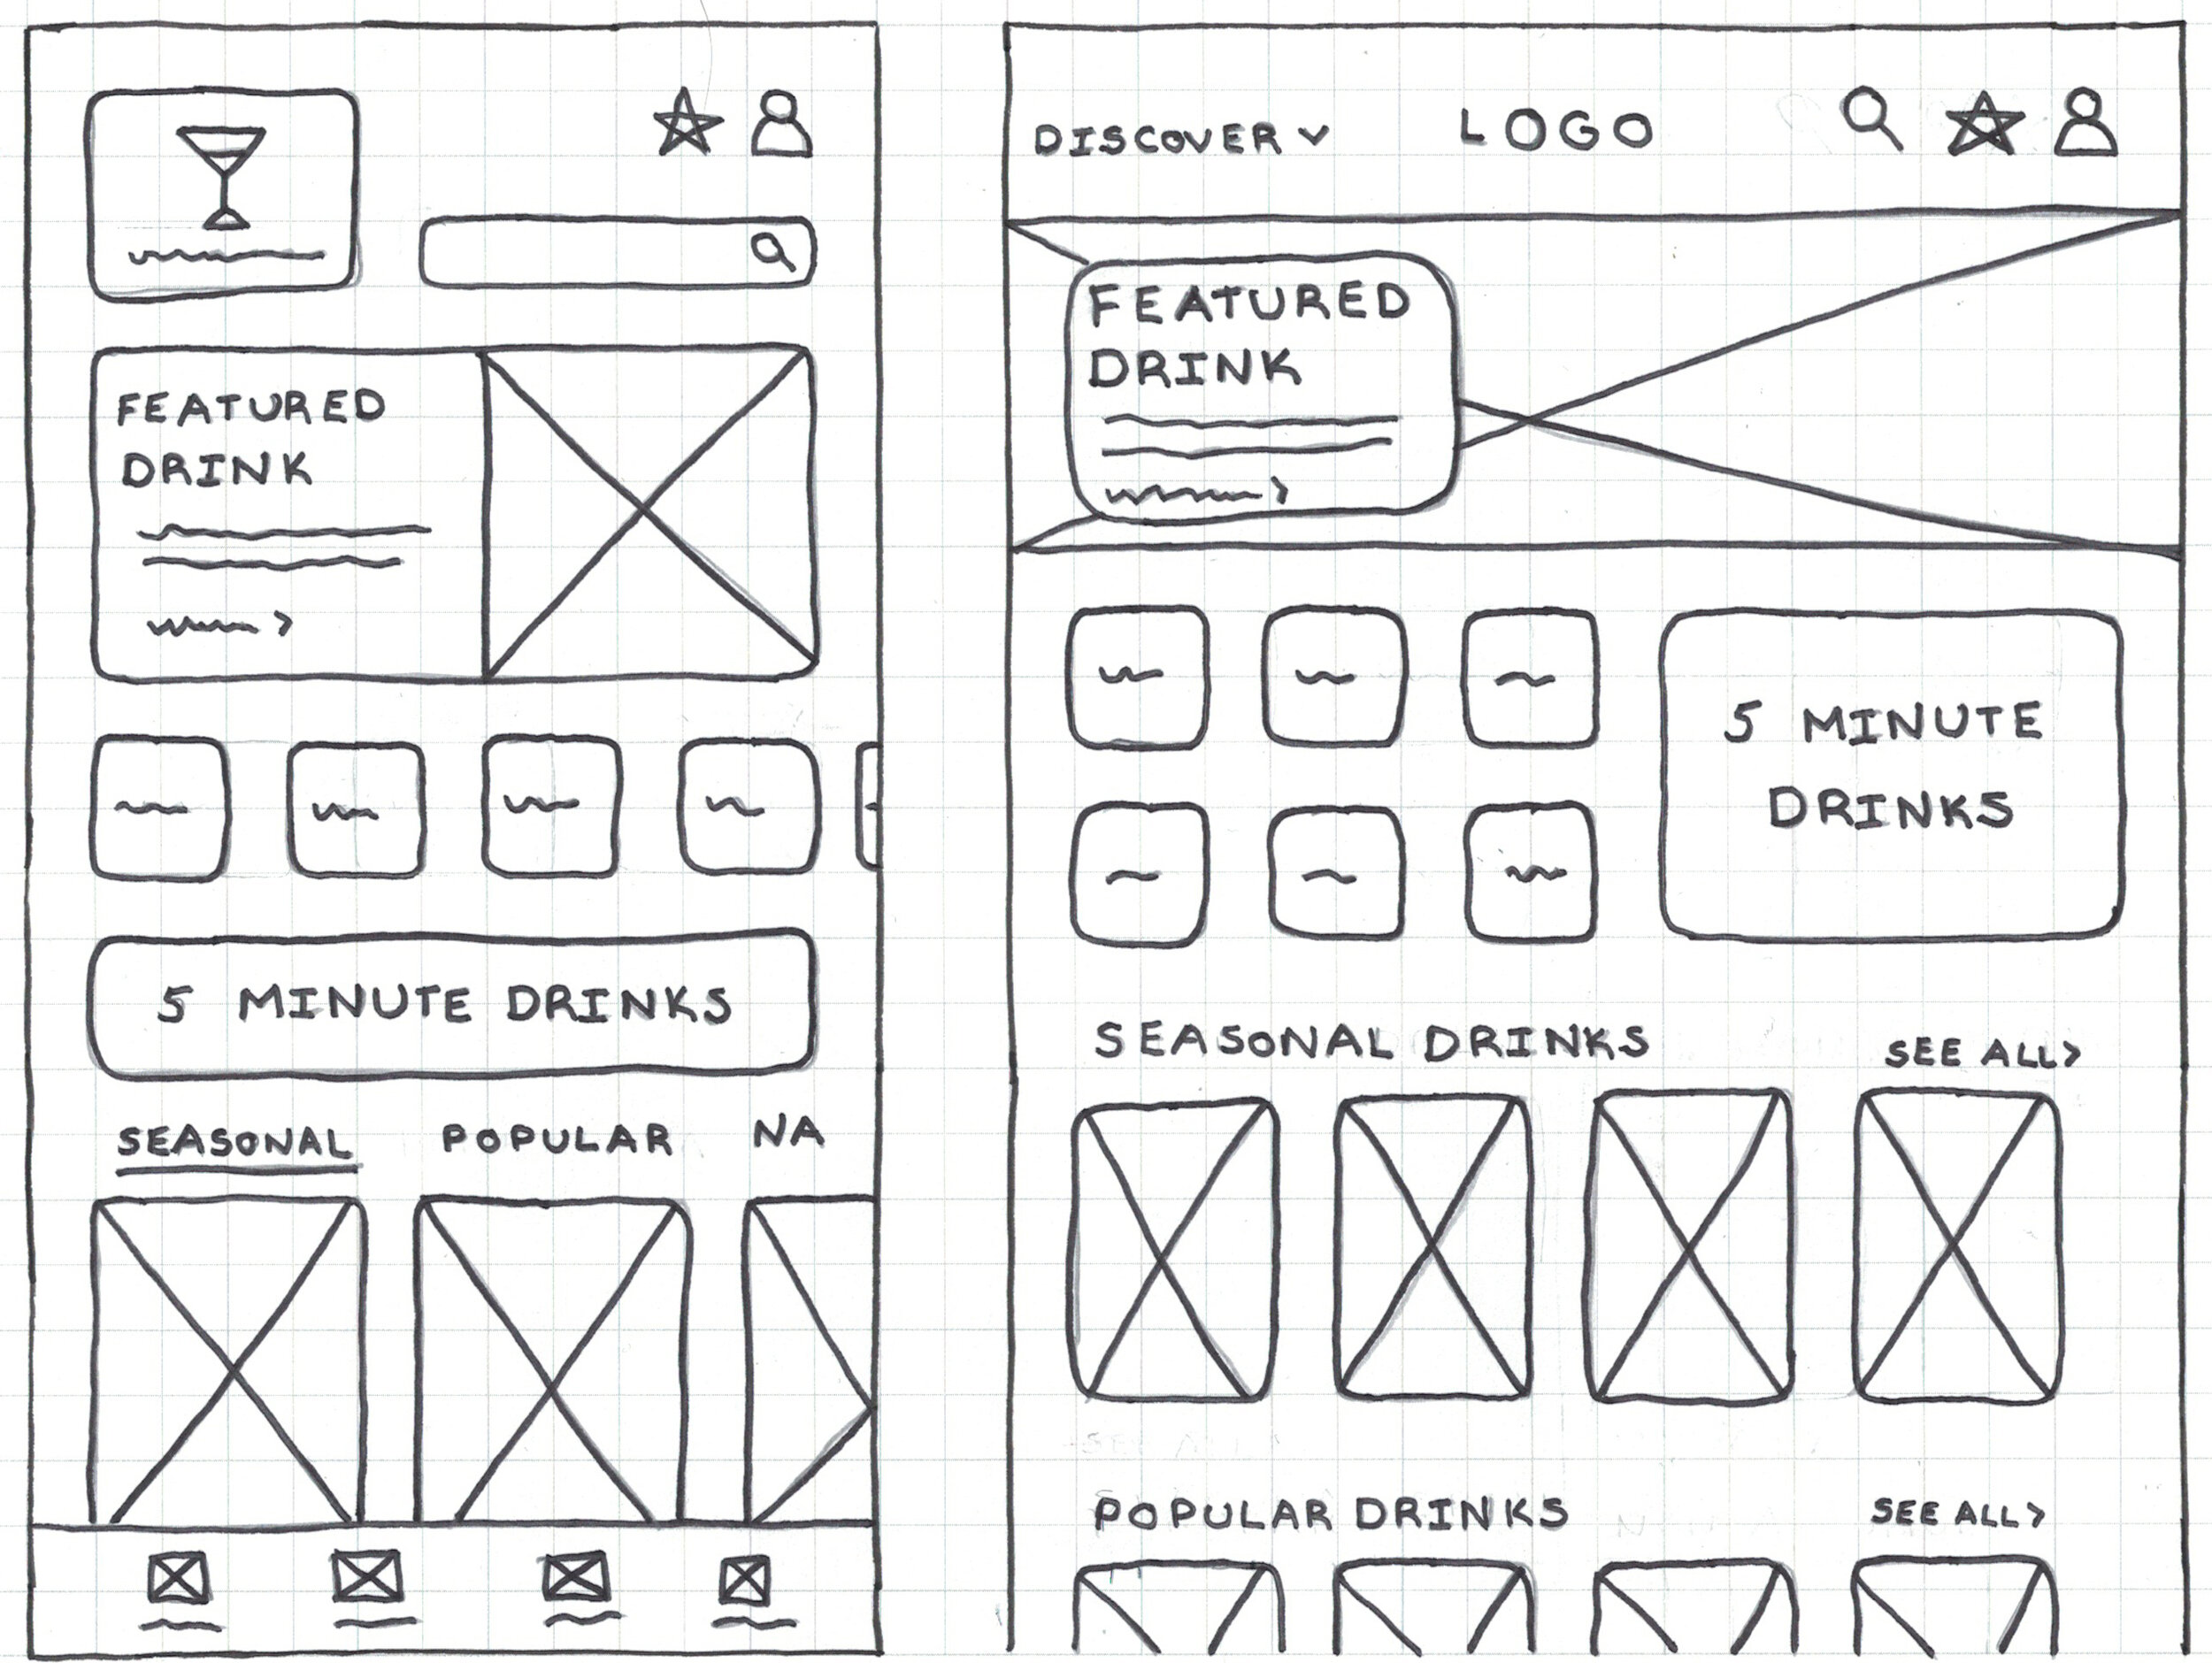 FEATURED
DRINK
5 MINUTE DRINKS
SEASONAL POPULAR NA
DISCOVER LOGO
FEATURED
DRINK
5 MINUTE
DRINKS
SEASONAL DRINKS SEE ALL>
POPULAR DRINKS SEE ALL>